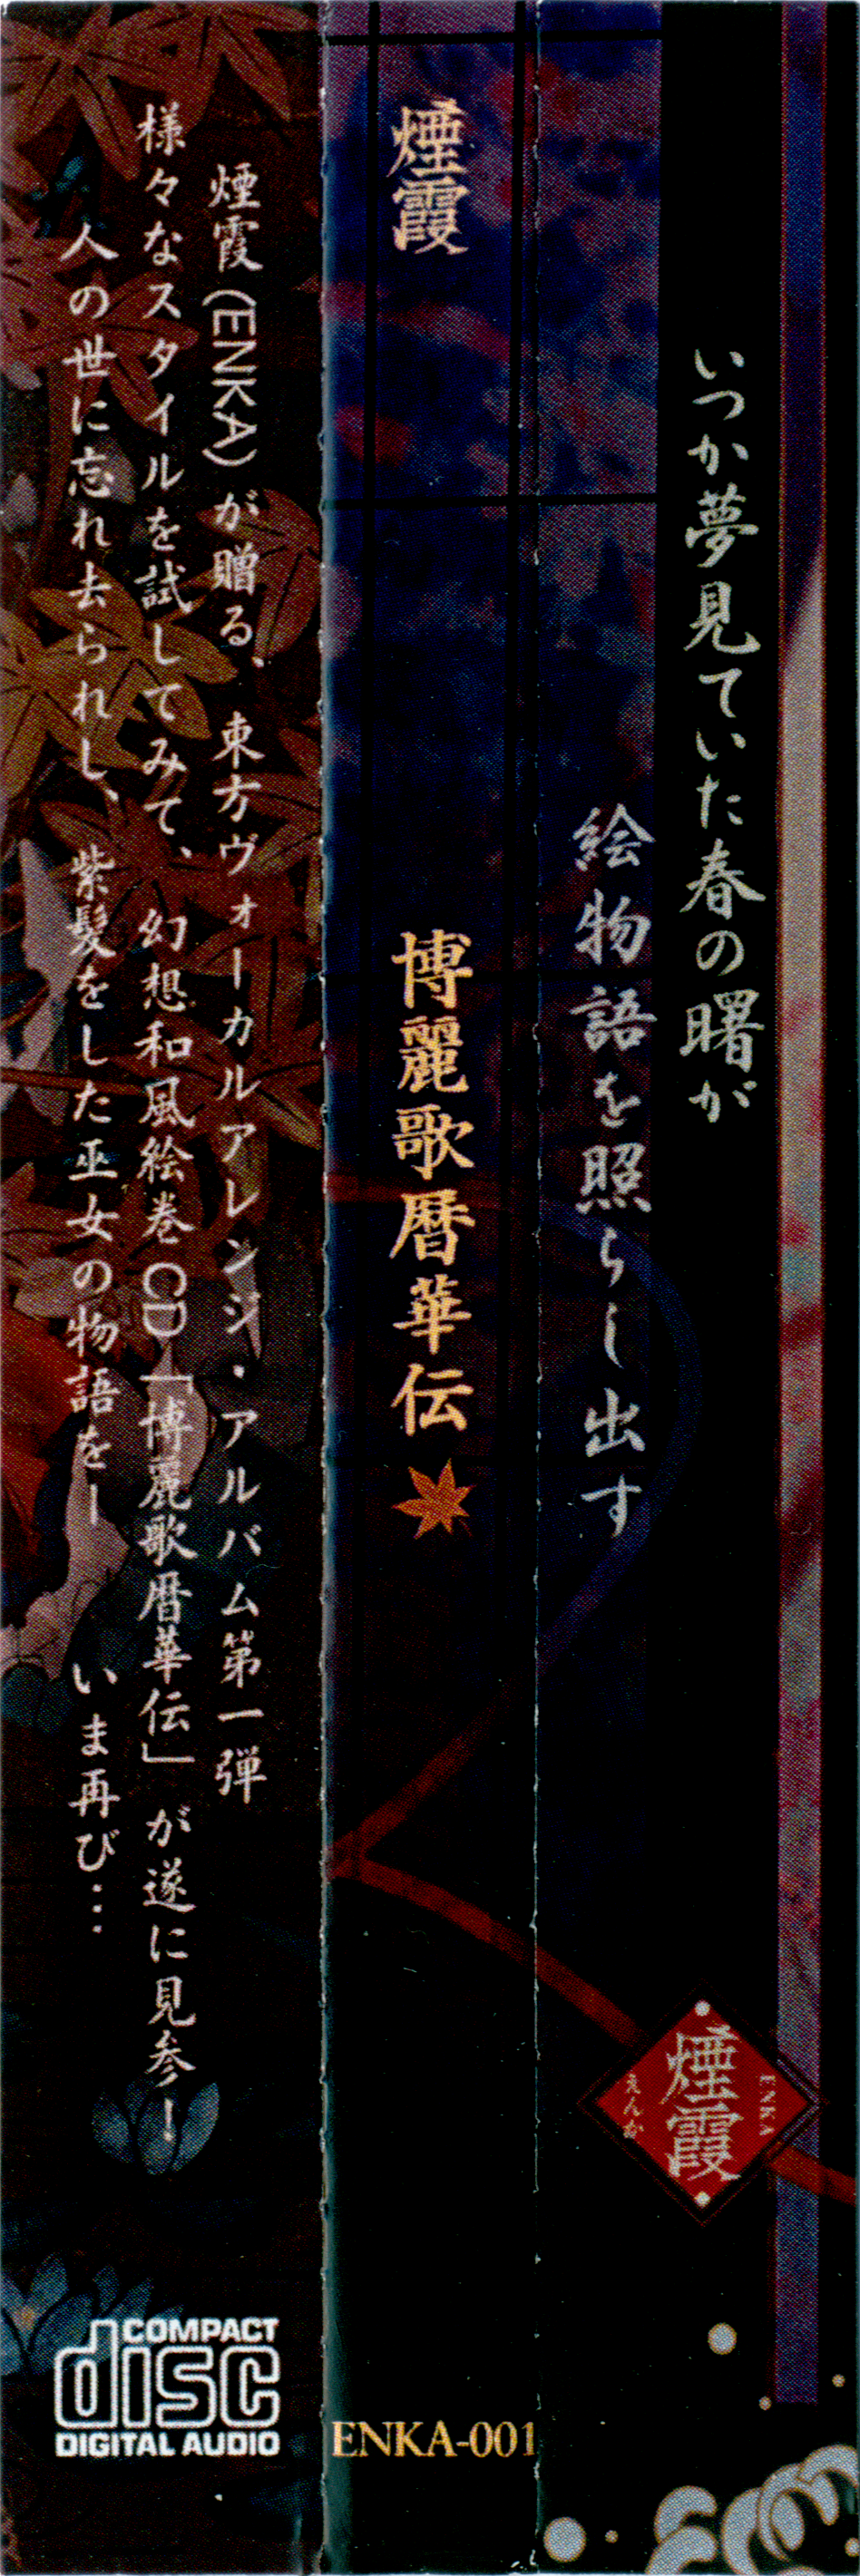 いつか夢見ていた春の曙が
絵物語を照らし出す
煙霞
ENKA
えんか
煙霞
博麗歌暦華伝
ENKA-001
煙霞(ENKA)が贈る、東方ヴォーカルアレンジ・アルバム第一弾
様々なスタイルを試してみて、幻想和風絵巻CD「博麗歌暦華伝」が遂に見参！
人の世に忘れ去られし、紫髪をした巫女の物語をー　いま再び…
COMPACT
disc
DIGITAL AUDIO